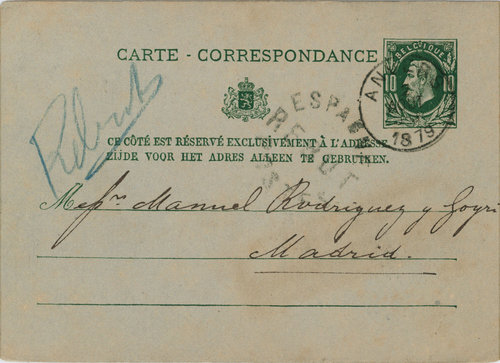 BELGIQUE
10 10
CARTE - CORRESPONDANCE
ANV
1879
ESPAG
CE CÔTÉ EST RÉSERVÉ EXCLUSIVEMENT À L'ADRESSE
ZIJDE VOOR HET ADRES ALLEEN TE GEBRUIKEN.
Manuel Rodriguez y Goyri
Madrid.